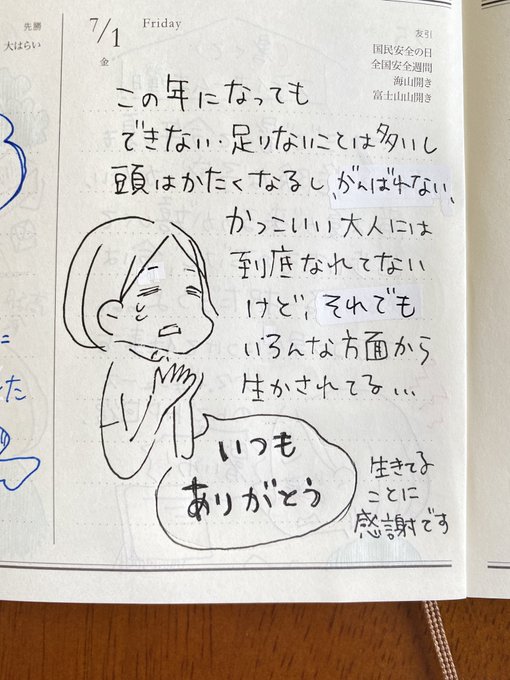 先勝
大はらい
7/1 Friday
金
友引
国民安全の日
全国安全週間
海山開き
富士山山開き
この年になっても
できない・足りないことは多いし
頭はかたくなるし、がんばれない、
かっこいい大人には
到底なれてない
けど、それでも
いろんな方面から
生かされてる…
いつも
ありがとう
生きてる
ことに
感謝です
に
た